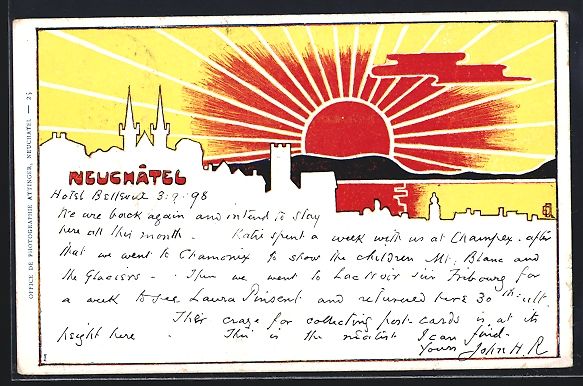 NEUCHÂTEL
Hotel Bellevue 3.9.98
We are back again and intend to stay
here all this month. Katie spent a week with us at Champex. after
that we went to Chamonix to show the children Mt. Blanc and
the Glaciers - Then we went to Lac Noir Fribourg for
a week to see Laura Pinsent and returned here 30th ult.
The craze for collecting post-cards is at its
height here. This is the neatest I can find.
Yours John H. R
OFFICE DE PHOTOGRAPHIE ATTINGER, NEUCHATEL —